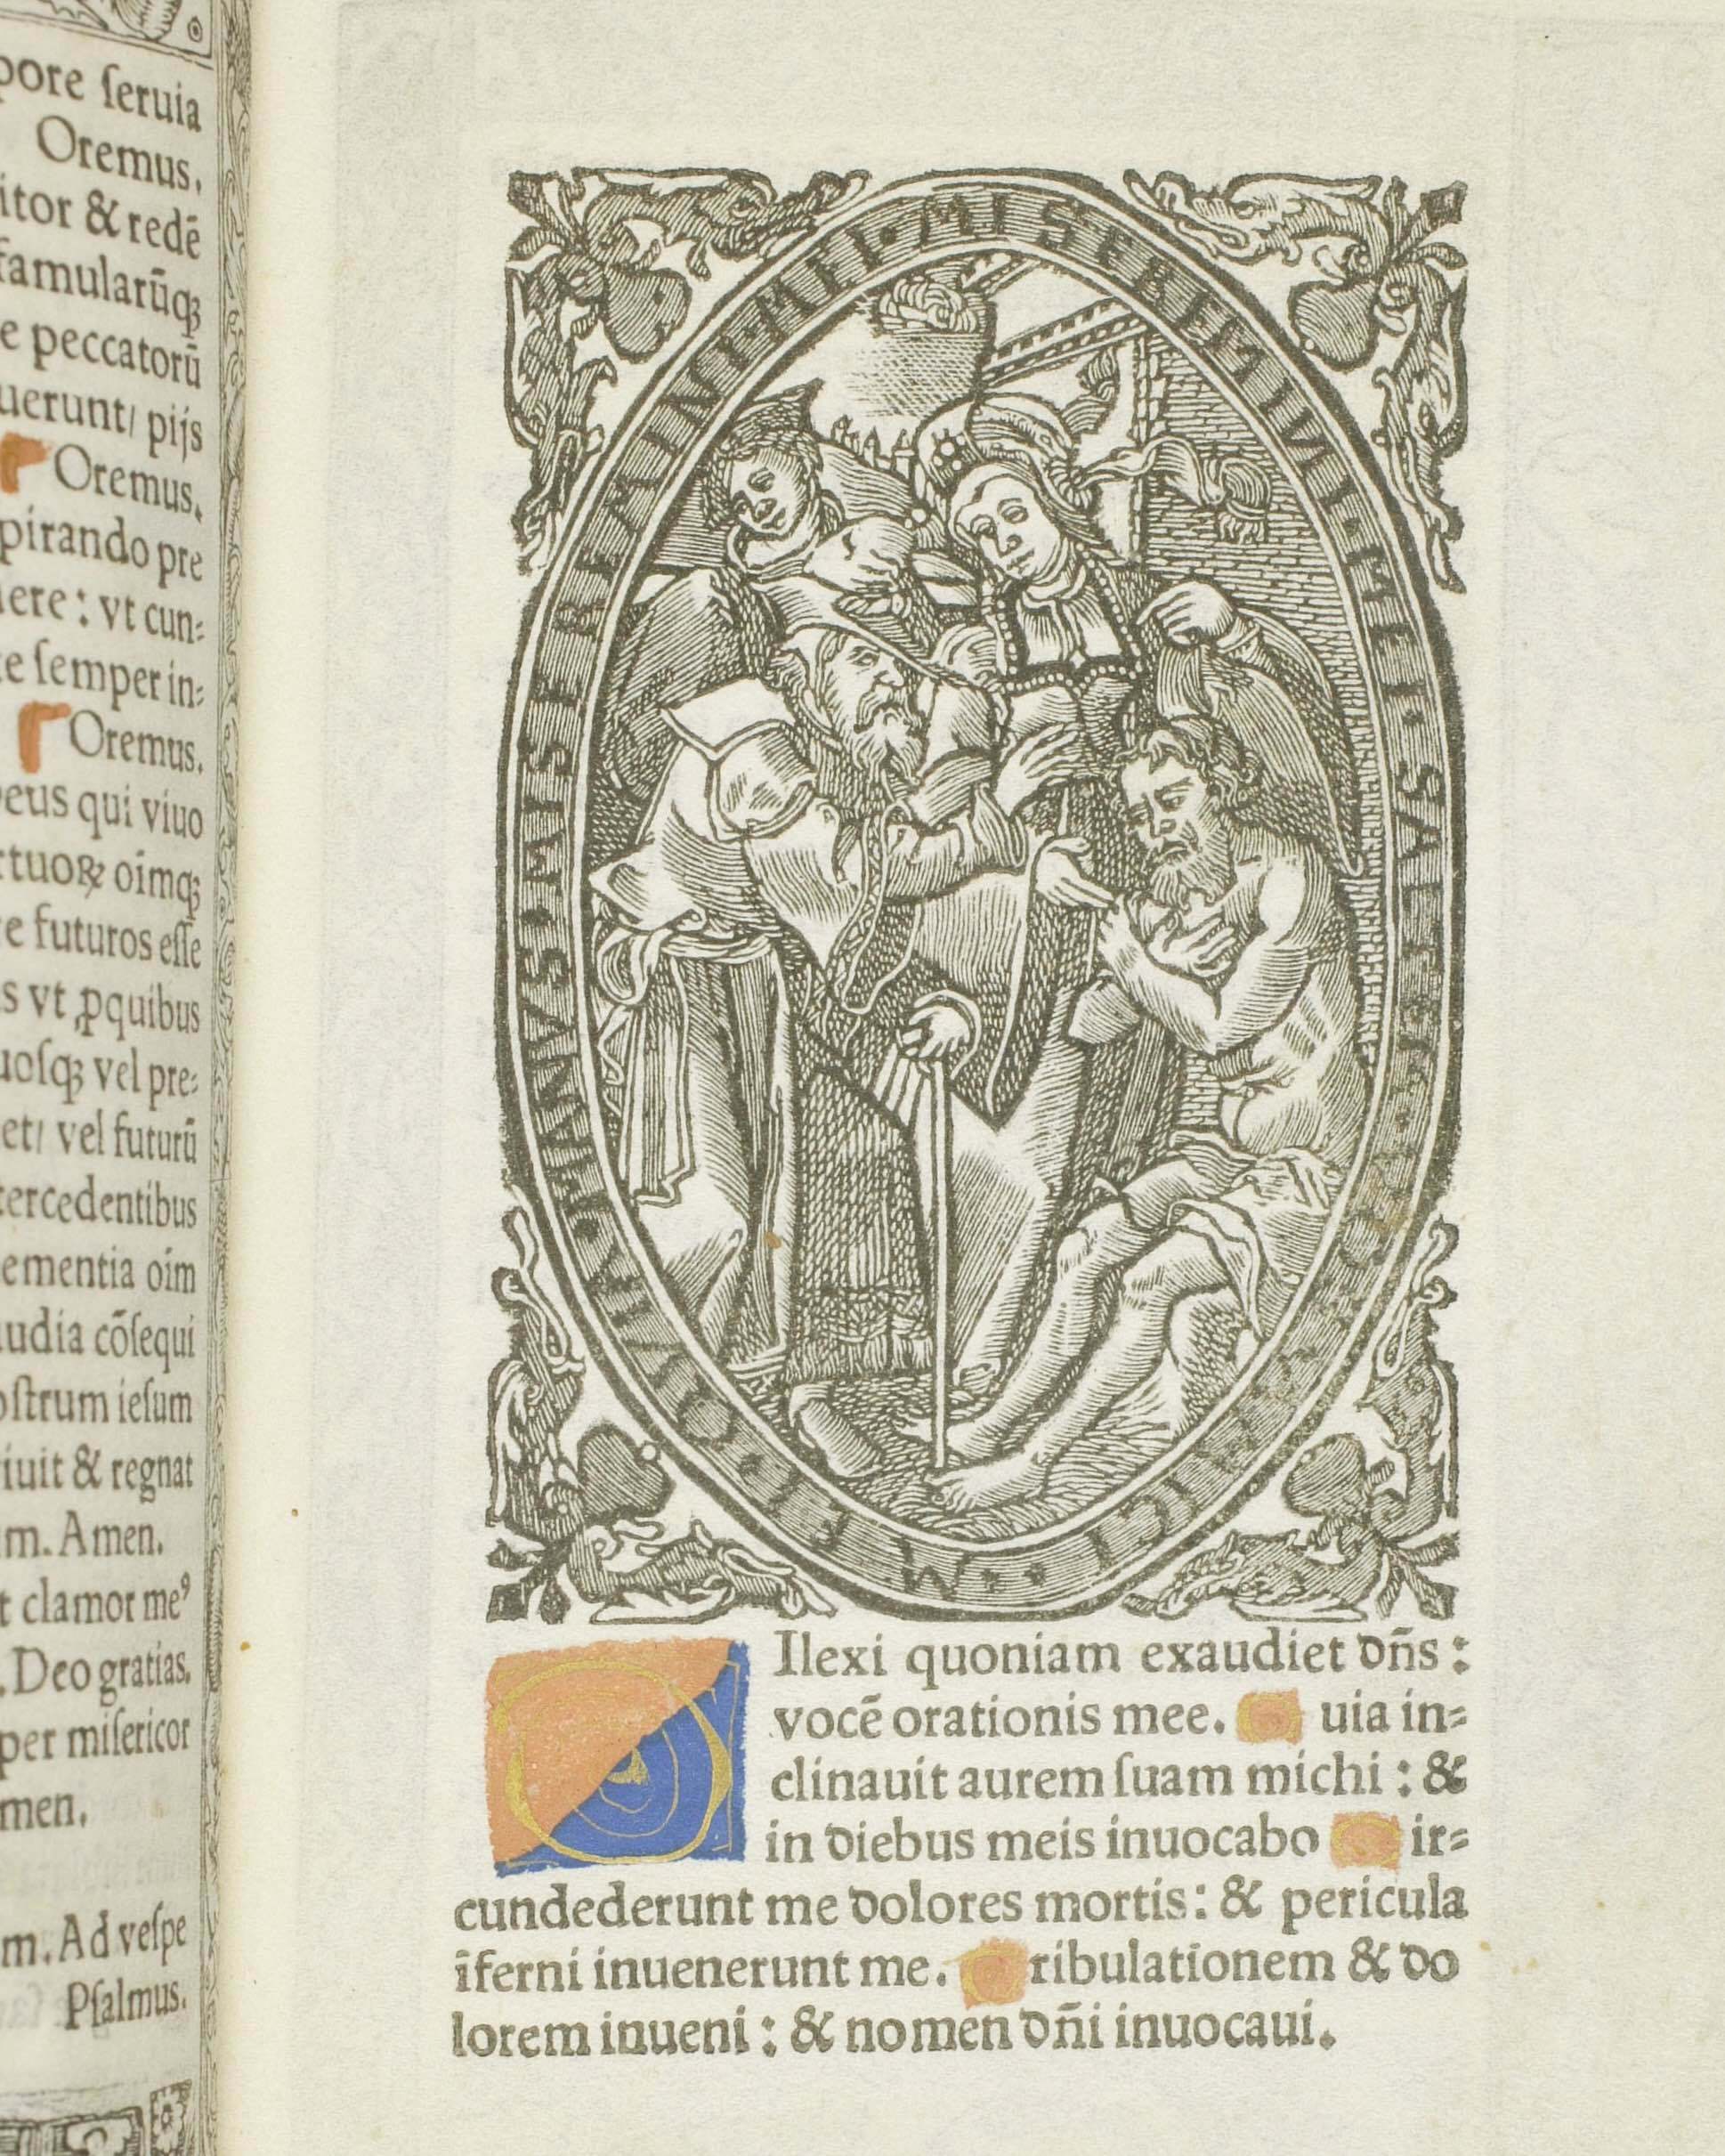 pore ſeruia
Oremus.
itor & redē
famularūqꝫ
e peccatorū
uerunt/ pijs
Oremus.
pirando pre
ere: vt cun⸗
te ſemper in⸗
Oremus.
eus qui viuo
rtuoꝝ oīmqꝫ
e futuros eſſe
s vt ꝓquibus
uoſqꝫ vel pre⸗
et/ vel futurū
tercedentibus
ementia oīm
audia cōſequi
oſtrum ieſum
viuit & regnat
m. Amen.
t clamor meꝰ
. Deo gratias.
per miſericor
men.
m. Ad veſpe
Pſalmus.
MISEREMINI · MEI · SALTEM · VOS · AMICI · MEI ·
MANVS · MISEREMINI · MEI ·
Ilexi quoniam exaudiet dn̄s :
vocē orationis mee. uia in⸗
clinauit aurem ſuam michi : &
in diebus meis inuocabo ir⸗
cundederunt me dolores mortis : & pericula
īferni inuenerunt me. ribulationem & do
lorem inueni : & nomen dn̄i inuocaui.